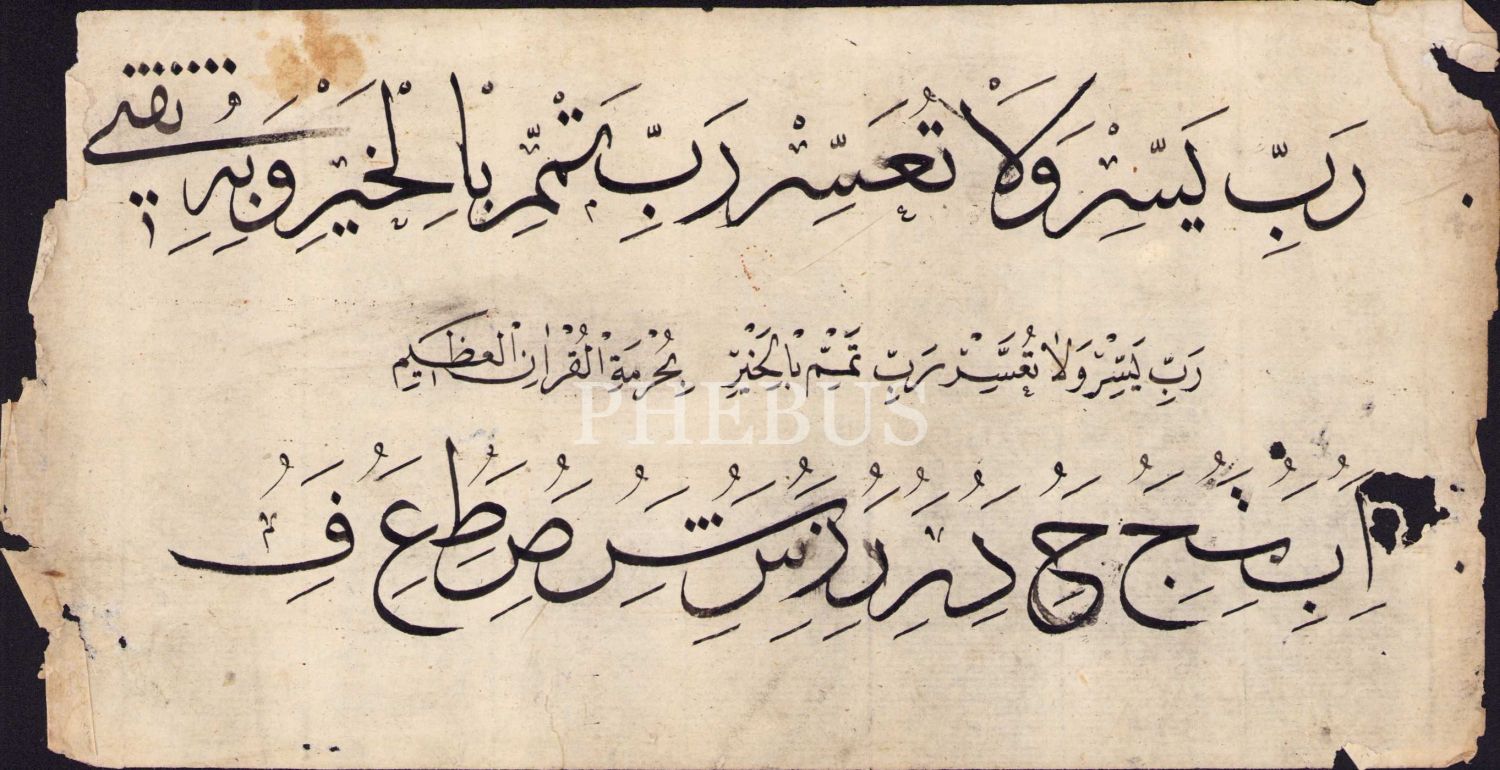 رَبِّ يَسِّرْ وَلَا تُعَسِّرْ رَبِّ تَمِّمْ بِالْخَيْرِ وَبِهِ ثقتى
رَبِّ يَسِّرْ وَلَا تُعَسِّرْ رَبِّ تَمِّمْ بِالْخَيْرِ بِحُرْمَةِ الْقُرْاٰنِ الْعَظِيمِ
PHEBUS
ا ب ت ج ح د ر ر س ش ص ط ع ف